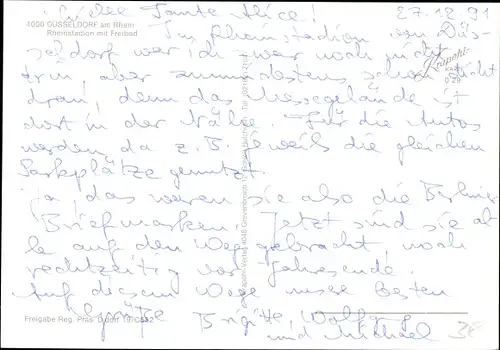 4000 DÜSSELDORF am Rhein
Rheinstadion mit Freibad
Liebe Tante Alice! 27.12.91
Im Rheinstadion von Düs-
seldorf war ich zwar noch nicht
drin, aber zumindestens schon dicht
dran, denn das Messegelände ist
dort in der Nähe. Für die Autos
werden da z.B. jeweils die gleichen
Parkplätze genutzt.
Ja, das waren sie also die Berliner
Briefmarken. Jetzt sind sie al-
le auf den Weg gebracht, noch
rechtzeitig vor Jahresende.
Auf diesem Wege unsere besten
Grüße Brigitte, Wolfgang
und Michael
Krapohl
Freigabe Reg. Präs. D'dorf
3€